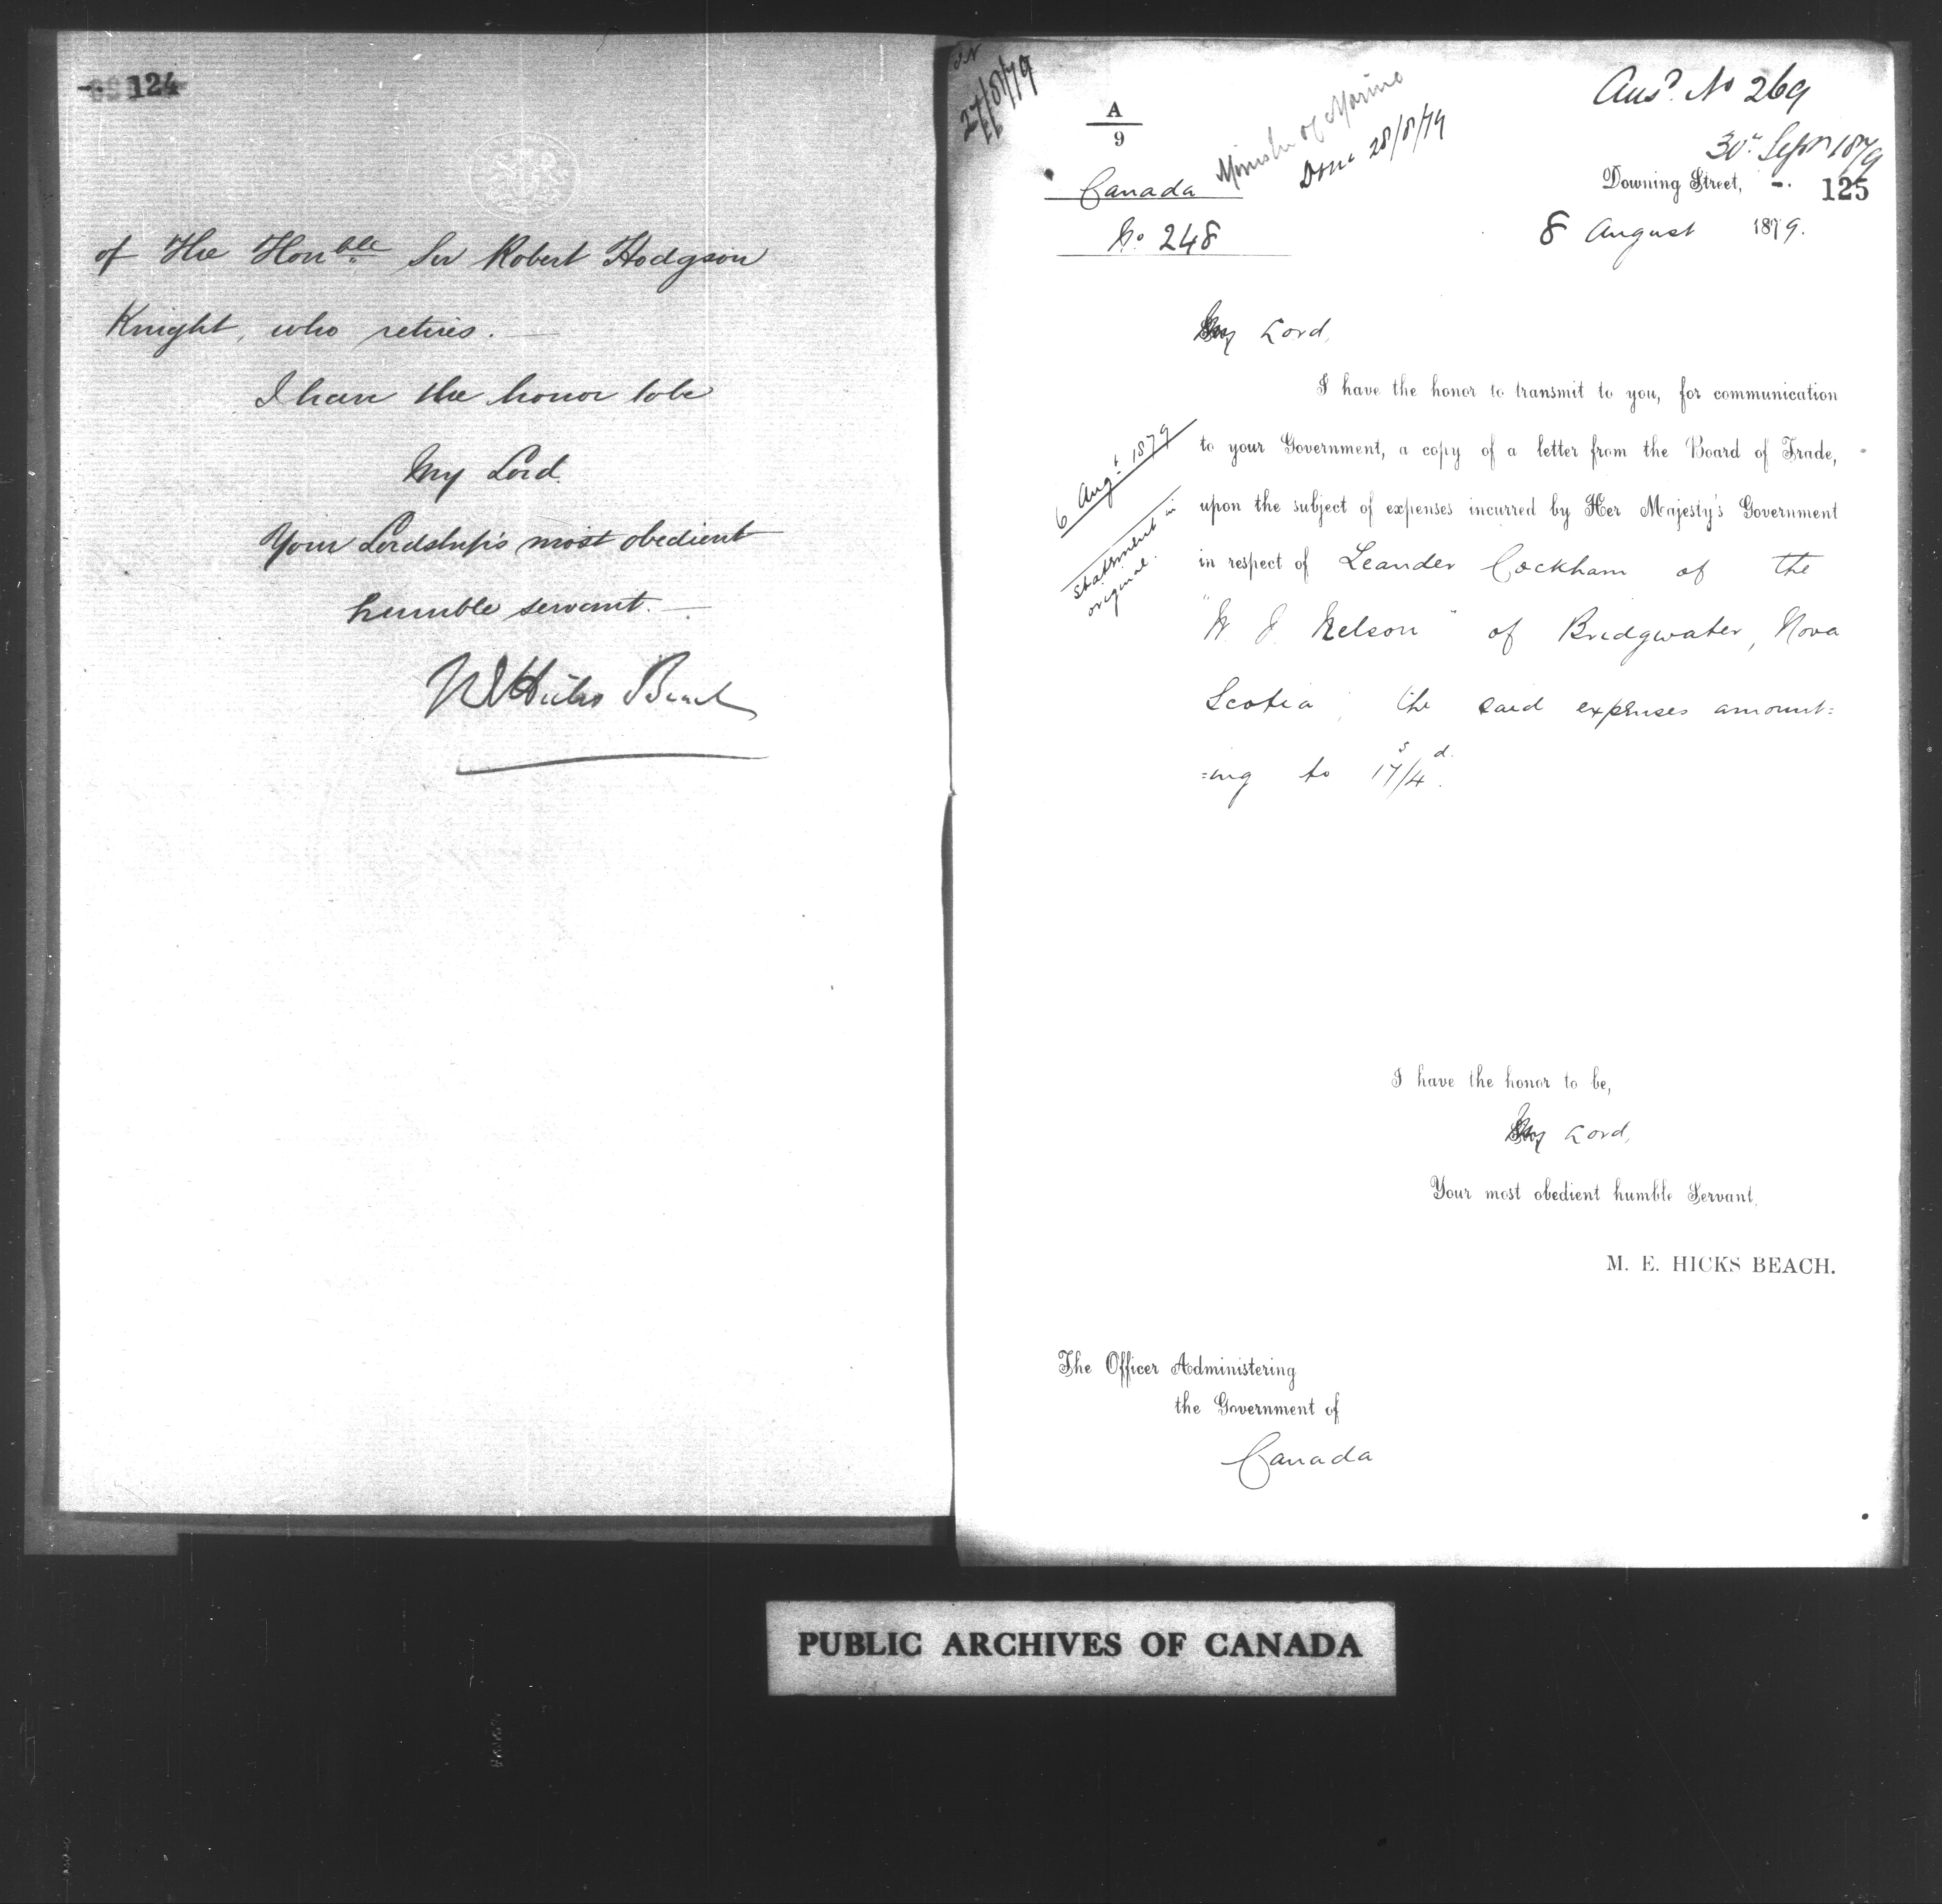 124
of The Honble Sir Robert Hodgson
Knight, who retires.
I have the honor to be
My Lord.
Your Lordship's most obedient
humble servant.
M E Hicks Beach
27/8/79
A
9
Minister of Marine
28/8/79
Ansd. No 269
30th Sepr 1879
Canada
No 248
Downing Street,
125
8 August 1879.
My Lord,
I have the honor to transmit to you, for communication
6 Augt 1879
to your Government, a copy of a letter from the Board of Trade,
statement in
original.
upon the subject of expenses incurred by Her Majesty's Government
in respect of Leander Cockham of the
"W J Nelson" of Bridgwater, Nova
Scotia, the said expenses amount=
=ing to 17s/4d.
I have the honor to be,
My Lord,
Your most obedient humble Servant,
M. E. HICKS BEACH.
The Officer Administering
the Government of
Canada
PUBLIC ARCHIVES OF CANADA